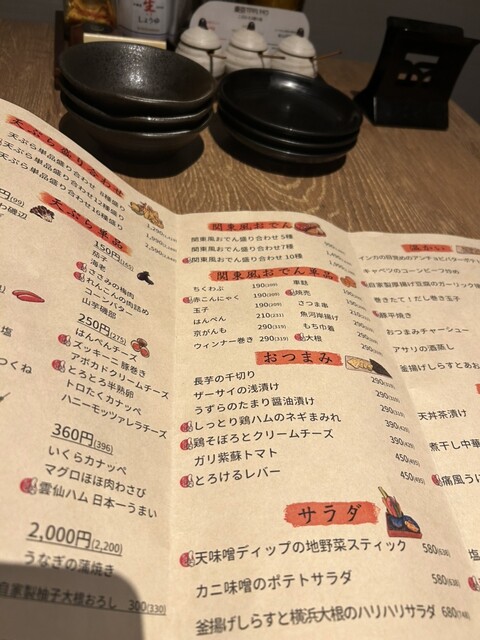 生
しょうゆ
天ぷら盛り合わせ
天ぷら単品盛り合わせ 8種盛り
天ぷら単品盛り合わせ12種盛り
天ぷら単品盛り合わせ16種盛り
天ぷら単品
150円(165)
茄子
海老
ささみの梅肉
れんこんの肉詰め
コーンバター
山芋磯部
250円(275)
はんぺんチーズ
ズッキーニ豚巻き
アボカドクリームチーズ
とろとろ半熟卵
トロたくカナッペ
ハニーモッツァレラチーズ
360円(396)
いくらカナッペ
マグロほほ肉わさび
雲仙ハム 日本一うまい
2,000円(2,200)
うなぎの蒲焼き
自家製柚子大根おろし 300(330)
円(99)
磯辺
塩
つくね
関東風おでん
関東風おでん盛り合わせ 5種
関東風おでん盛り合わせ 7種
関東風おでん盛り合わせ 10種
関東風おでん単品
ちくわぶ 190(209)
赤こんにゃく 190(209)
玉子 190(209)
はんぺん 210(231)
京がんも 290(319)
ウィンナー巻き 290(319)
車麩
焼売
さつま串
魚河岸揚げ
もち巾着
大根
おつまみ
長芋の千切り 290(319)
ザーサイの浅漬け 290(319)
うずらのたまり醤油漬け 290(319)
しっとり鶏ハムのネギまみれ 390(429)
鶏そぼろとクリームチーズ 390(429)
ガリ紫蘇トマト 450(495)
とろけるレバー 450(495)
サラダ
天味噌ディップの地野菜スティック 580(638)
カニ味噌のポテトサラダ 580(638)
釜揚げしらすと横浜大根のハリハリサラダ 680(748)
温かい
インカの目覚めのアンチョビバターポテト
キャベツのコーンビーフ炒め
自家製厚揚げ豆腐のガーリック
巻きたて！だし巻き玉子
豚平焼き
おつまみチャーシュー
アサリの酒蒸し
釜揚げしらすとあお
天丼茶漬け
煮干し中華
痛風う
塩